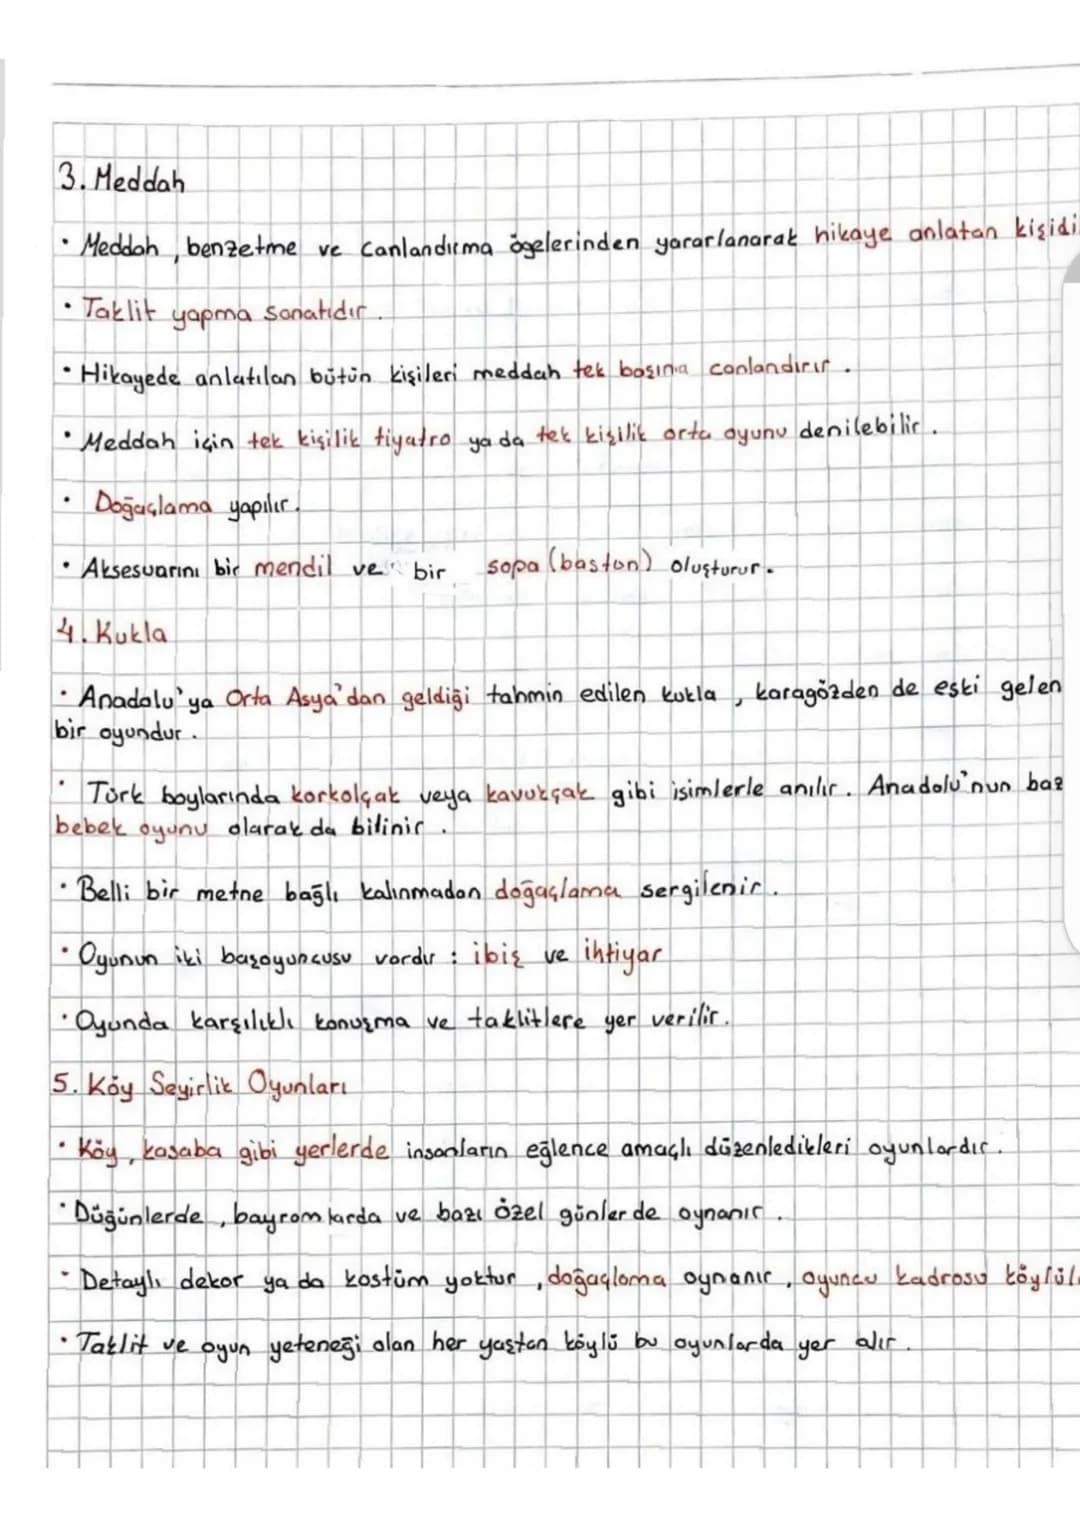 3. Meddah
· Meddah, benzetme ve canlandırma ögelerinden yararlanarak hikaye anlatan kişidi
· Taklit yapma sanatıdır.
· Hikayede anlatılan bütün kişileri meddah tek başına canlandırır.
· Meddah için tek kişilik tiyatro ya da tek kişilik orta oyunu denilebilir.
· Doğaçlama yapılır.
· Aksesuarını bir mendil ve bir sopa (baston) oluşturur.
4. Kukla
· Anadolu'ya Orta Asya'dan geldiği tahmin edilen kukla, karagözden de eski gelen
bir oyundur.
· Türk boylarında korkolçak veya kavukçak gibi isimlerle anılır. Anadolu'nun baz
bebek oyunu olarak da bilinir.
· Belli bir metne bağlı kalınmadan doğaçlama sergilenir.
· Oyunun iki başoyuncusu vardır : ibiş ve ihtiyar
· Oyunda karşılıklı konuşma ve taklitlere yer verilir.
5. Köy Seyirlik Oyunları
· Köy, kasaba gibi yerlerde insanların eğlence amaçlı düzenledikleri oyunlardır.
· Düğünlerde, bayramlarda ve bazı özel günlerde oynanır.
· Detaylı dekor ya da kostüm yoktur, doğaçlama oynanır, oyuncu kadrosu köylül
· Taklit ve oyun yeteneği olan her yaştan köylü bu oyunlarda yer alır.